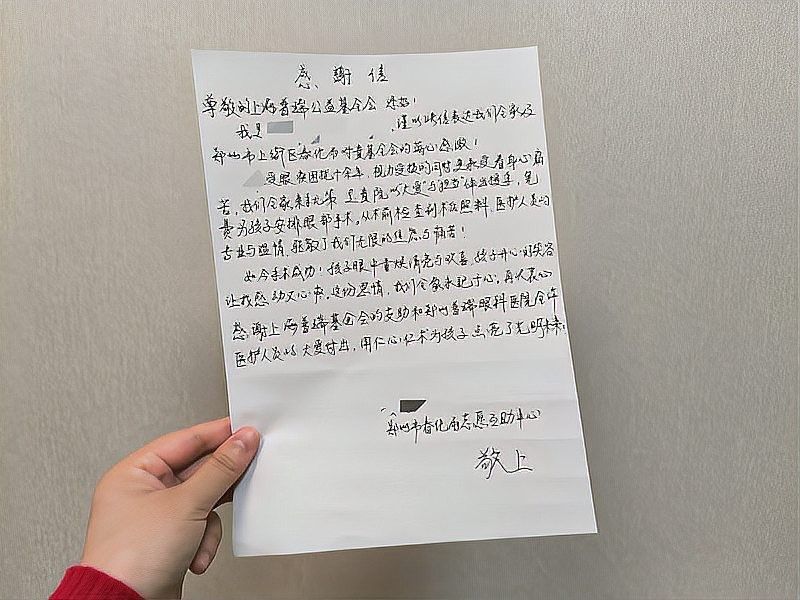 感谢信
尊敬的上海普瑞公益基金会 您好!
我是 ,谨以此信表达我们全家及
郑州市上街区春化布对贵基金会的衷心感谢!
受眼疾困扰十余年,视力受损的同时更承受着身心痛
苦,我们全家束手无策,是贵院以“大爱”与“担当”伸出援手,免
费为孩子安排眼部手术。从术前检查到术后照料,医护人员的
专业与温情,驱散了我们无限的焦虑与痛苦!
如今手术成功!孩子眼中重焕清亮与欢喜,孩子开心的笑容
让我感动又心安。这份恩情,我们全家永记于心。再次衷心
感谢上海普瑞基金会的支助和郑州普瑞眼科医院全体
医护人员的大爱付出,用仁心仁术为孩子点亮了光明未来!
郑州市春化布志愿互助中心
敬上